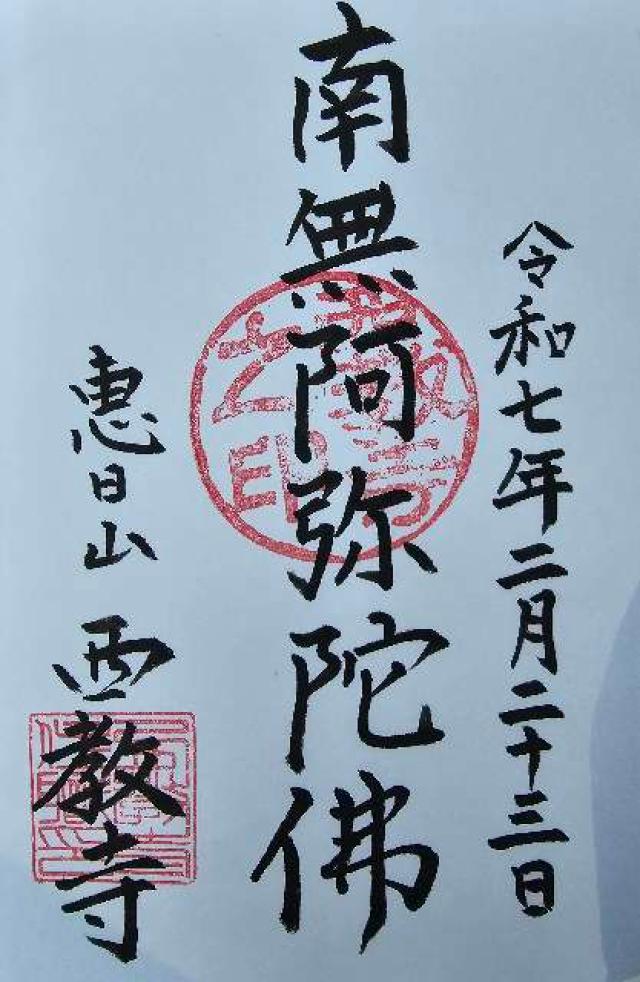 令和七年二月二十三日
南無阿弥陀佛
惠日山
西教寺